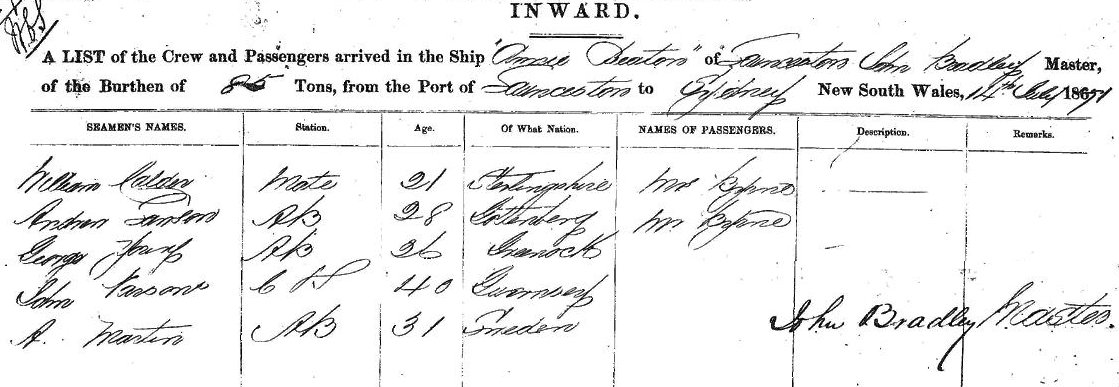 INWARD.
A LIST of the Crew and Passengers arrived in the Ship "Annie Beaton" of Launceston John Bradley Master,
of the Burthen of 85 Tons, from the Port of Launceston to Sydney New South Wales, 14th July 1871
SEAMEN'S NAMES. Station. Age. Of What Nation. NAMES OF PASSENGERS. Description. Remarks.
William Calder Mate 21 Sterlingshire Mrs Byrne
Andrew Lawson AB 28 Gotenberg Mr Byrne
George Young AB 26 Greenock
John Parsons 40 Guernsey
A. Martin AB 31 Sweden John Bradley Master.